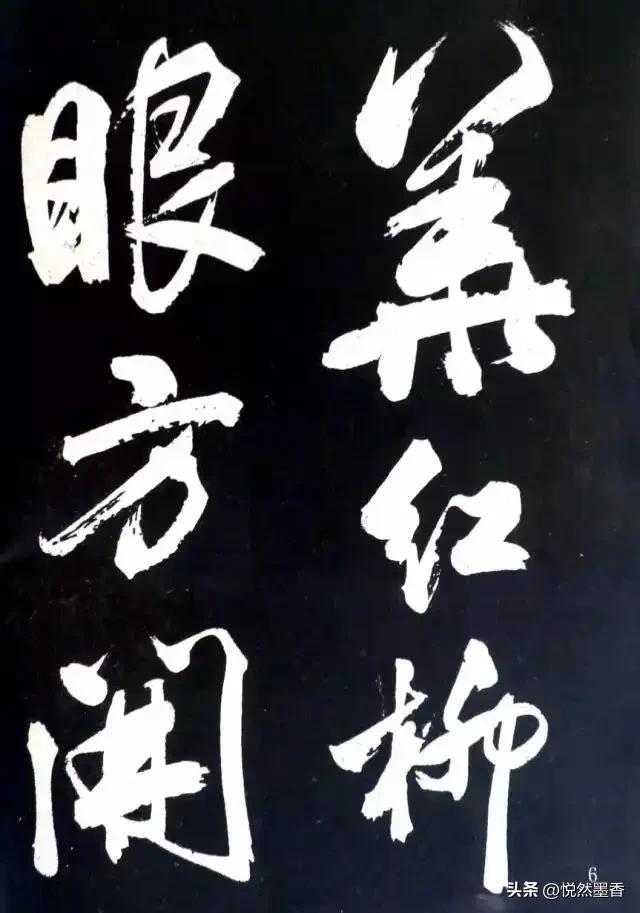 華红柳
眼方開
6
头条 @悦然墨香